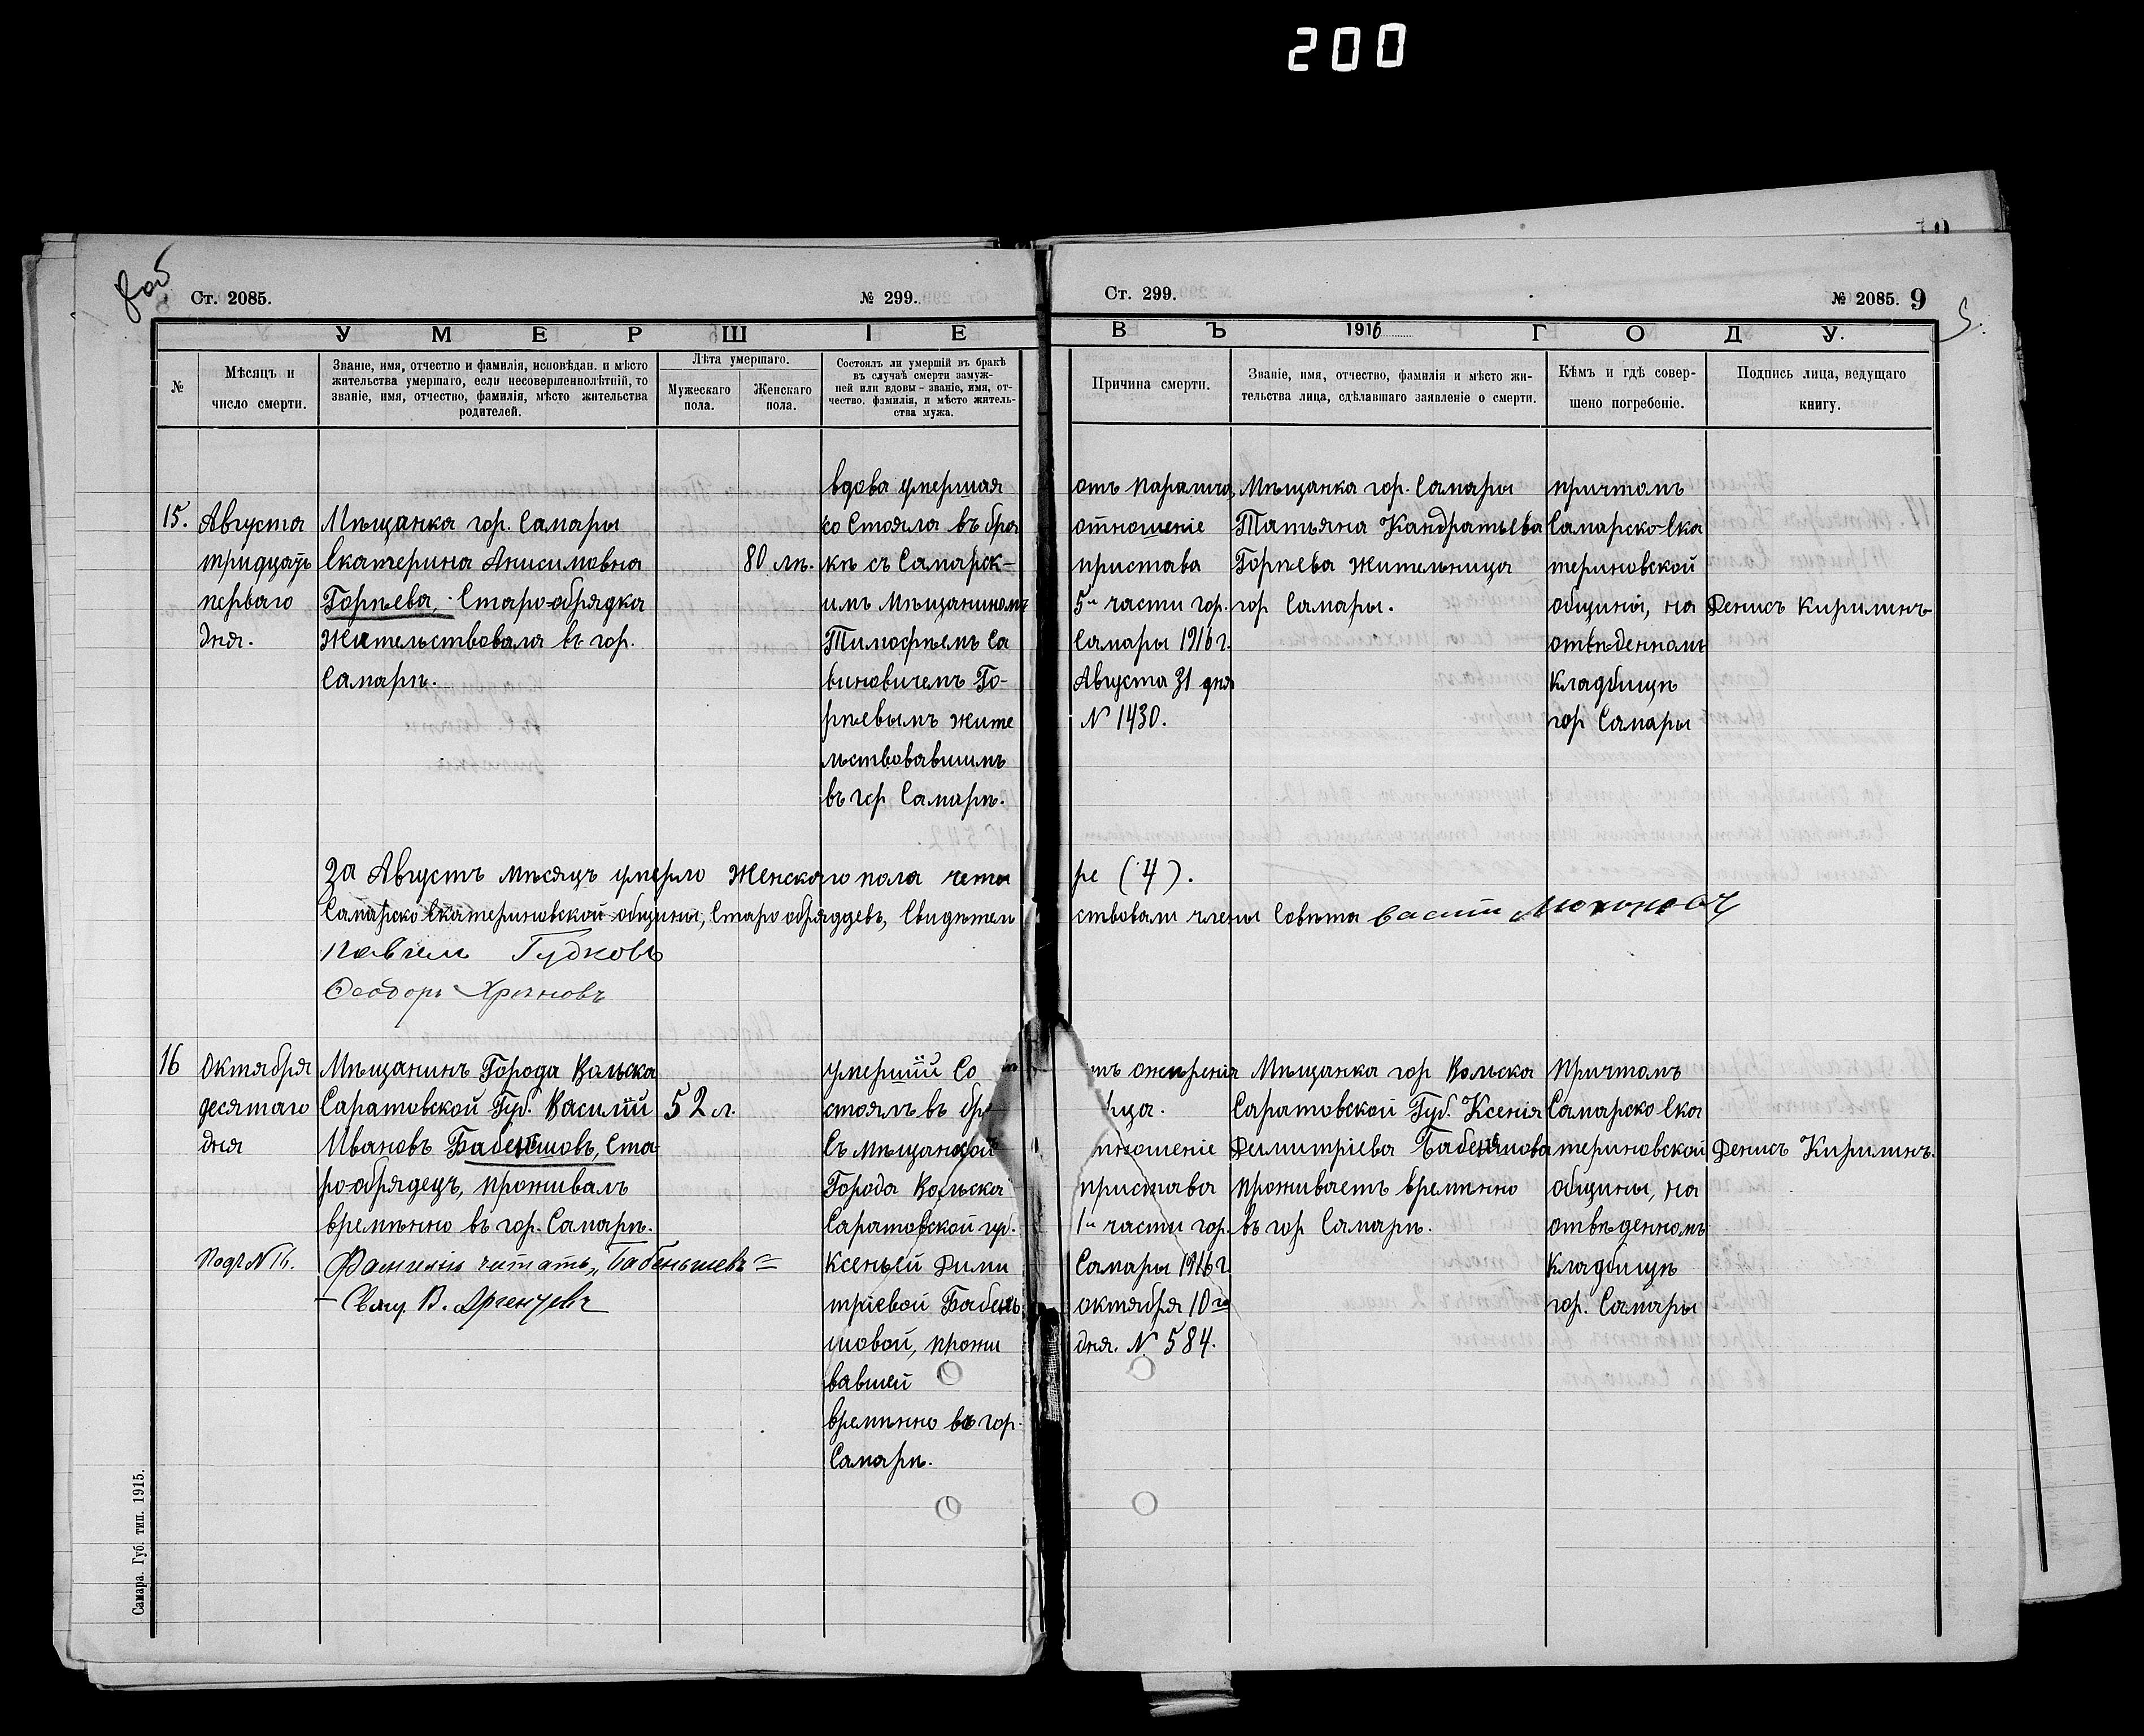 200
Ст. 2085.
№ 299.
У М Е Р Ш І Е
№
Мѣсяцъ и
число смерти.
Званіе, имя, отчество и фамилія, исповѣдан. и мѣсто
жительства умершаго, если несовершеннолѣтній, то
званіе, имя, отчество, фамилія, мѣсто жительства
родителей.
Лѣта умершаго.
Мужескаго
пола.
Женскаго
пола.
Состоялъ ли умершій въ бракѣ
въ случаѣ смерти замуж-
ней или вдовы - званіе, имя, от-
чество, фамилія, и мѣсто житель-
ства мужа.
Ст. 299.
№ 2085. 9
В Ъ 1916 Г О Д У.
Причина смерти.
Званіе, имя, отчество, фамилія и мѣсто жи-
тельства лица, сдѣлавшаго заявленіе о смерти.
Кѣмъ и гдѣ совер-
шено погребеніе.
Подпись лица, ведущаго
книгу.
15.
Августа
тридцать
перваго
дня.
Мѣщанка гор. Самары
Екатерина Анисимовна
Горѣева, Старообрядка
Жительствовала въ гор.
Самарѣ.
80 лѣ.
вдова умершая
со Стояла въ бра
кѣ съ Самарск-
имъ Мѣщаниномъ
Тимофѣемъ Са
виновичемъ Го-
рѣевымъ жите
льствовавшимъ
въ гор Самарѣ.
отъ паралича,
отношеніе
пристава
5й части гор.
Самары 1916 г.
Августа 31 дня
N 1430.
Мѣщанка гор. Самары
Татьяна Кандратьева
Горѣева жительница
гор Самары.
причтомъ
Самарско-Ека
териновской
общины, на
отвѣденномъ
Кладбищѣ
гор Самары
Денисъ Кирилинъ
За Августъ мѣсяцъ умерло Женскаго пола четы
ре (4).
Самарско Екатериновской общины, Старообрядцевъ, Свидѣтель
ствовали члены Совѣта
Гудковъ
Феодоръ
16
Октября
десятаго
дня
Мѣщанинъ Города Вольска
Саратовской Губ. Василий
Ивановъ Бабенышовъ, Ста-
рообрядецъ, проживалъ
времѣнно въ гор. Самарѣ.
52 л.
умерший Со
стоялъ въ бр
Съ мѣщанкой
Города Вольска
Саратовской губ.
Ксеньей Дими
тріевой Бабены
шовой, прожи
вавшей
времѣнно въ гор.
Самарѣ.
ожиренія
пристава
1й части гор.
Самары 1916 г
октября 10го
дня. N 584.
Мѣщанка гор Вольска
Саратовской Губ. Ксенія
Димитріева Бабенышова
проживаетъ времѣнно
въ гор Самарѣ.
Причтомъ
Самарско Ека
териновской
общины, на
отвѣденномъ
Кладбищѣ
гор. Самары
Денисъ Кирилинъ.
Подъ N 16.
Фамилію читать „Бабенышевъ"
Самара. Губ. тип. 1915.